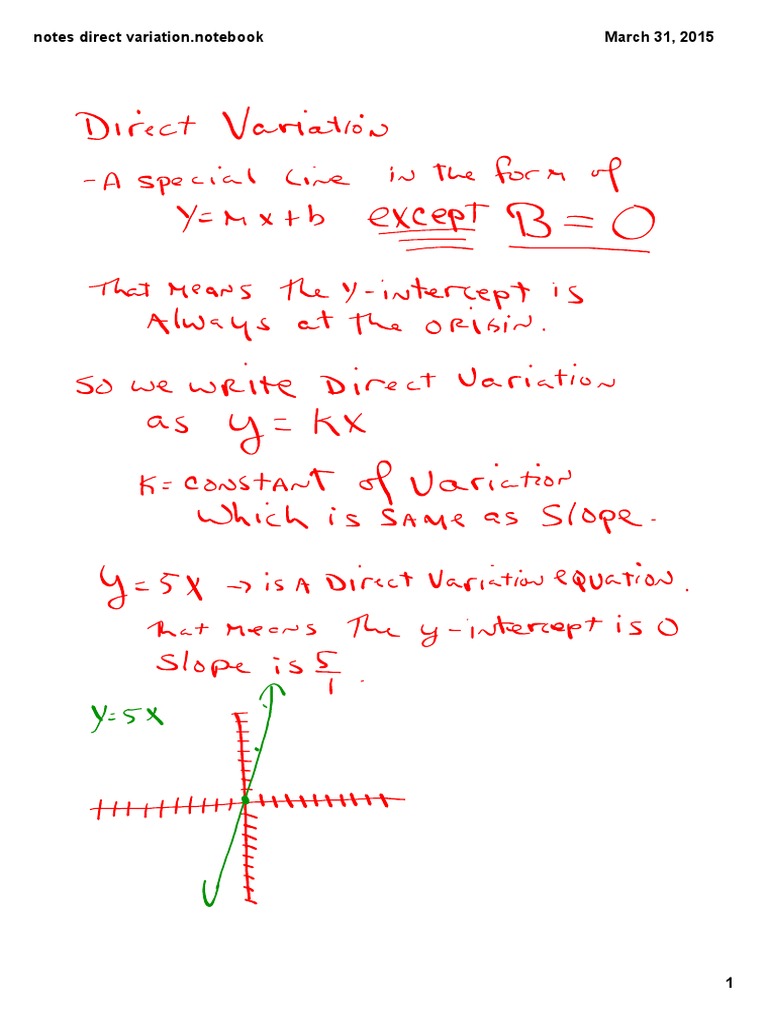 notes direct variation.notebook March 31, 2015
Direct Variation
- A special line in the form of
y = mx + b except B = 0
That means the y-intercept is
Always at the origin.
So we write Direct Variation
as y = kx
k = constant of variation
which is same as slope.
y = 5x → is a Direct Variation equation.
That means the y-intercept is 0
Slope is 5/1.
y = 5x
1